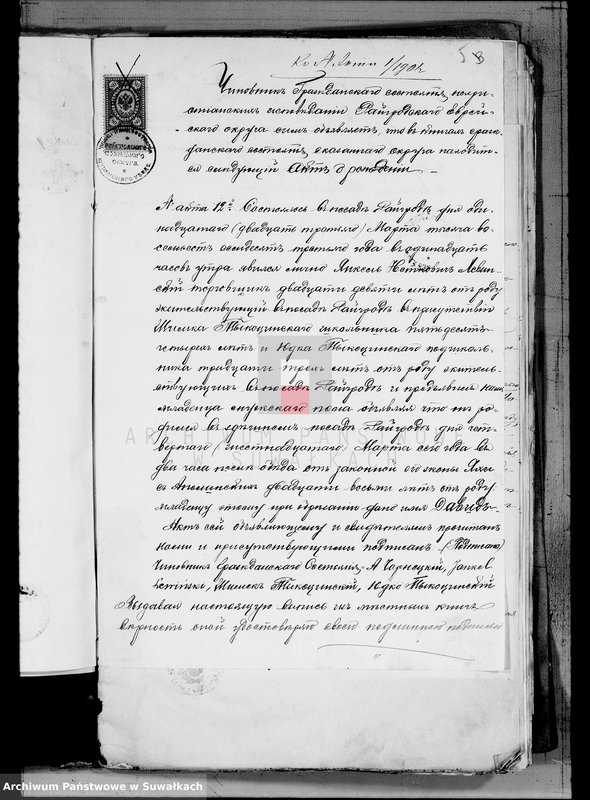 Къ А. Акта 1/1904
5 8
Чиновникъ Гражданскаго состоянія, нехри-
стіанскихъ исповѣданій Райгродскаго Еврей-
скаго округа симъ объявляетъ, что въ книгахъ граж-
данскаго состоянія, сказаннаго округа находит-
ся слѣдующій Актъ о рожденіи
№ акта 12й Состоялось въ посадѣ Райгродъ дня оди-
надцатаго (двадцать третьяго) Марта тысяча во-
семьсотъ восьмдесятъ третьяго года въ одинадцать
часовъ утра явился лично Янкель Левин-
скій торговщикъ двадцати девяти лѣтъ отъ роду
жительствующій въ посадѣ Райгродъ въ присутствіи
Тыкоцинскаго школьника пятьдесятъ
четырехъ лѣтъ и Юдка Тыкоцинскаго подшколь-
ника тридцати трехъ лѣтъ отъ роду житель-
ствующихъ въ посадѣ Райгродъ и предъявилъ намъ
младенца мужскаго пола объявляя что онъ ро-
дился въ здѣшнемъ посадѣ Райгродъ дня чет-
вертаго (шестнадцатаго) Марта сего года въ
два часа послѣ обѣда отъ законной его жены
съ двадцати восьми лѣтъ отъ роду
младенцу этому при обрѣзаніи дано имя Давидъ
Актъ сей объявляющему и свидѣтелямъ прочитанъ
нами и присутствующими подписанъ. (Подписано)
Чиновникъ Гражданскаго Состоянія А. Чарнецкій, Jankel
Lewiński, Тыкоцинскій, Юдко Тыкоцинскій
Выдавая настоящую выпись изъ мѣстныхъ книгъ
вѣрность оной удостовѣряю своей подлинною подписью
ARCHIWUM PAŃSTWOWE
W SUWAŁKACH
Archiwum Państwowe w Suwałkach